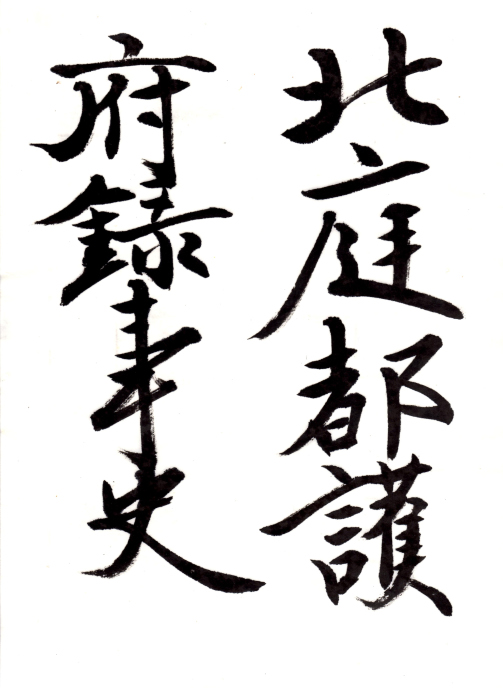 北庭都護
府録事史